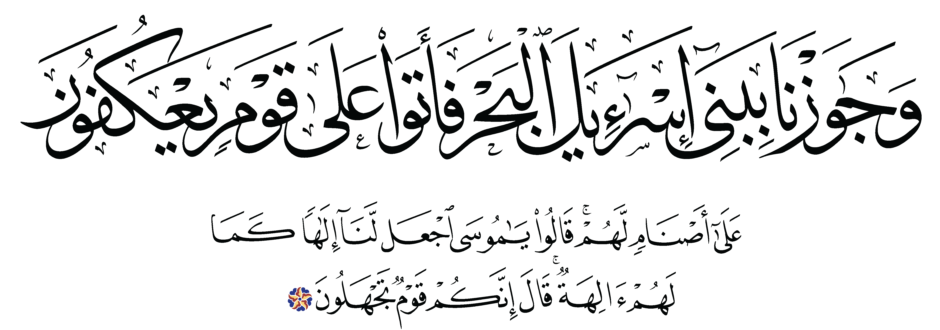 وَجَٰوَزْنَا بِبَنِىٓ إِسْرَٰٓءِيلَ ٱلْبَحْرَ فَأَتَوْا۟ عَلَىٰ قَوْمٍ يَعْكُفُونَ
عَلَىٰٓ أَصْنَامٍ لَّهُمْ ۚ قَالُوا۟ يَٰمُوسَى ٱجْعَل لَّنَآ إِلَٰهًا كَمَا
لَهُمْ ءَالِهَةٌ ۚ قَالَ إِنَّكُمْ قَوْمٌ تَجْهَلُونَ